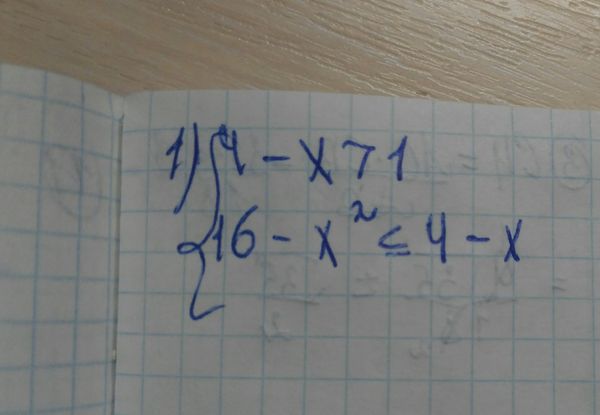 1) { 4 - x > 1
16 - x² ≤ 4 - x